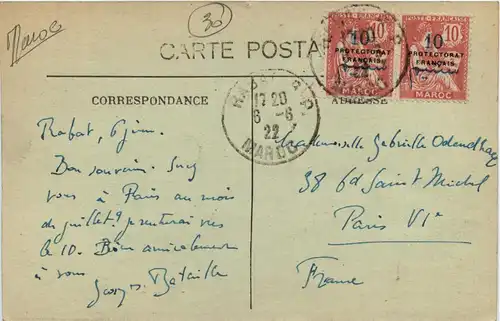 Maroc
30
CARTE POSTA
POSTE FRANÇAISE
10 10
PROTECTORAT
FRANÇAIS
MAROC
POSTE FRANÇAISE
10 10
PROTECTORAT
FRANÇAIS
MAROC
CORRESPONDANCE
ADRESSE
RABAT
17 20
6 -6
22
MAROC
Rabat, 6 juin.
Bon souvenir.
vous à Paris au mois
de juillet? vers
le 10. Bien amicalement
à vous
Georges Bataille
Mademoiselle Gabrielle
38 Bd Saint Michel
Paris VIe
France